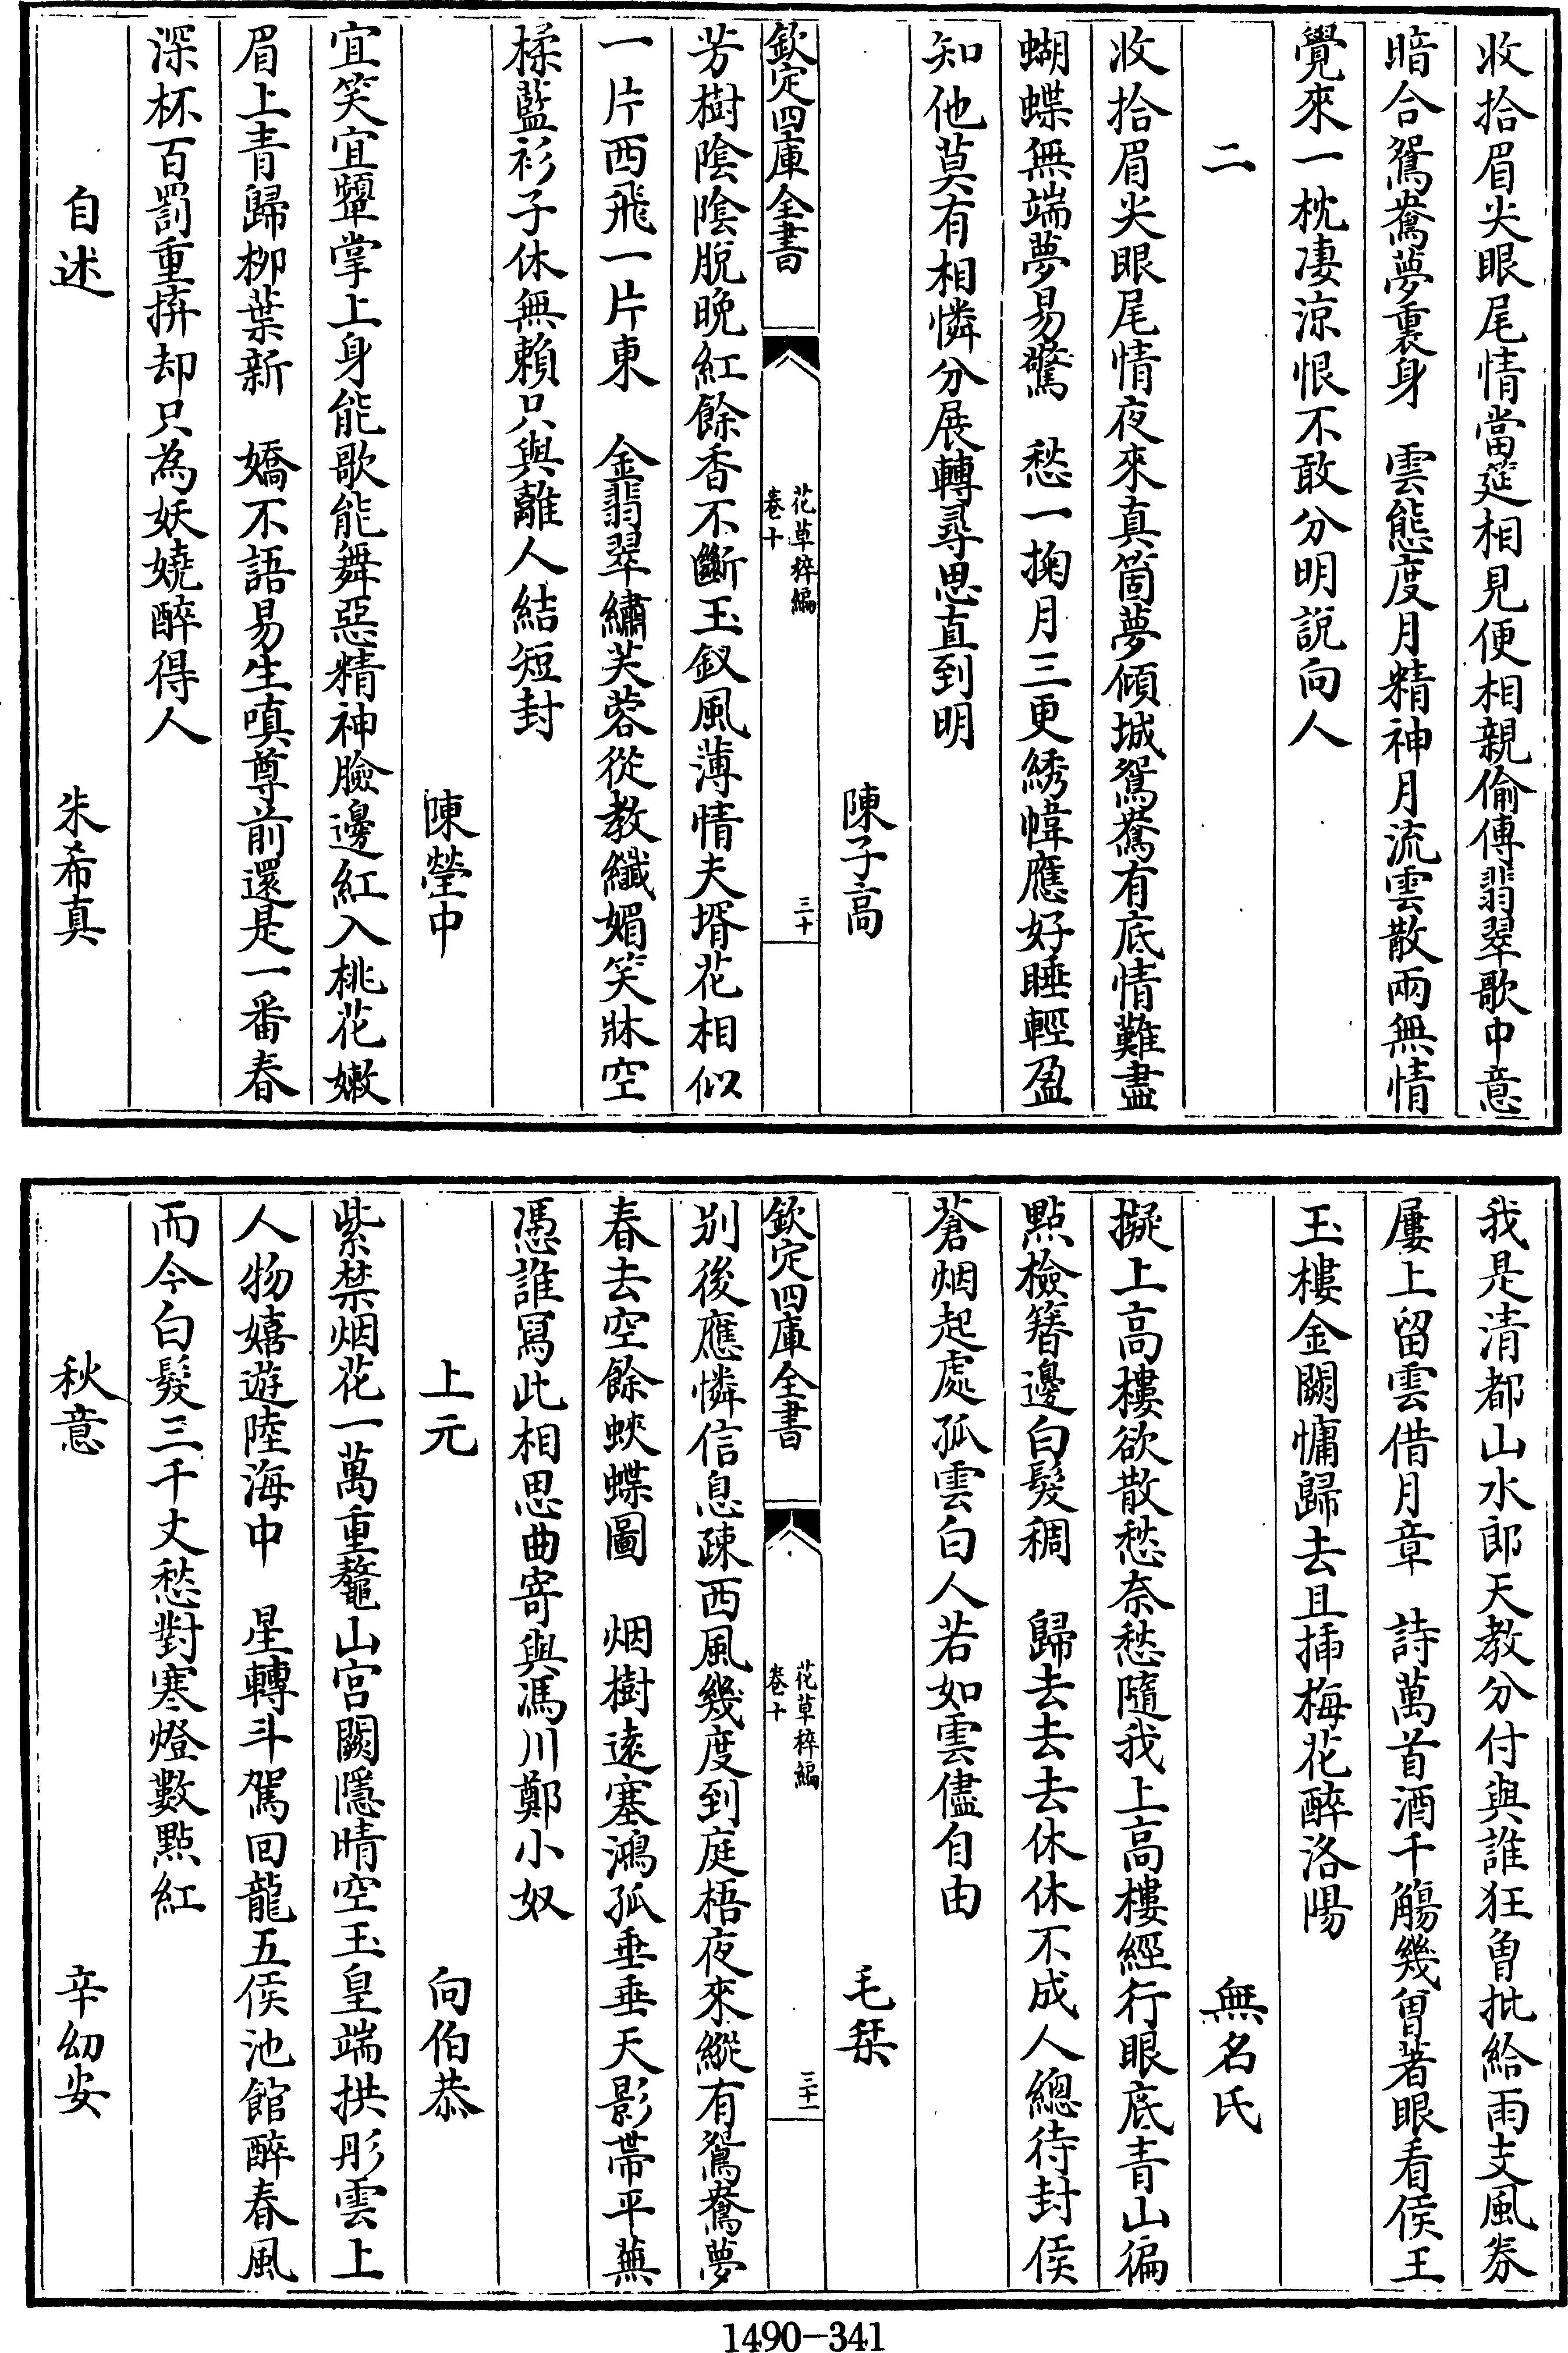 收拾眉尖眼尾情當筵相見便相親偷傳翡翠歌中意
暗合鴛鴦夢裏身　雲態度月精神月流雲散兩無情
覺來一枕凄涼恨不敢分明説向人
二
收拾眉尖眼尾情夜來真箇夢傾城鴛鴦有底情難盡
蝴蝶無端夢易驚　愁一掬月三更綉幃應好睡輕盈
知他莫有相憐分展轉尋思直到明
陳子高
欽定四庫全書
花草稡編
卷十
三十
芳樹陰陰脱晚紅餘香不斷玉釵風薄情夫壻花相似
一片西飛一片東　金翡翠繡芙蓉從教纖媚笑牀空
揉藍衫子休無賴只與離人結短封
陳瑩中
宜笑宜顰掌上身能歌能舞惡精神臉邊紅入桃花嫩
眉上青歸栁葉新　嬌不語易生嗔尊前還是一番春
深杯百罰重拚却只為妖嬈醉得人
自述　朱希真
我是清都山水郎天教分付與誰狂曽批給雨支風券
屢上留雲借月章　詩萬首酒千觴幾曽著眼看侯王
玉樓金闕慵歸去且揷梅花醉洛陽
無名氏
擬上高樓欲散愁奈愁隨我上高樓經行眼底青山徧
點檢簪邊白髮稠　歸去去去休休不成人總待封侯
蒼烟起處孤雲白人若如雲儘自由
毛栞
欽定四庫全書
花草稡編
卷十
三十一
别後應憐信息疎西風幾度到庭梧夜來縱有鴛鴦夢
春去空餘蛺蝶圖　烟樹遠塞鴻孤垂垂天影帶平蕪
憑誰冩此相思曲寄與馮川鄭小奴
上元　向伯恭
紫禁烟花一萬重鼇山宫闕隱晴空玉皇端拱彤雲上
人物嬉遊陸海中　星轉斗駕回龍五侯池館醉春風
而今白髮三千丈愁對寒燈數點紅
秋意　辛幼安
1490-341